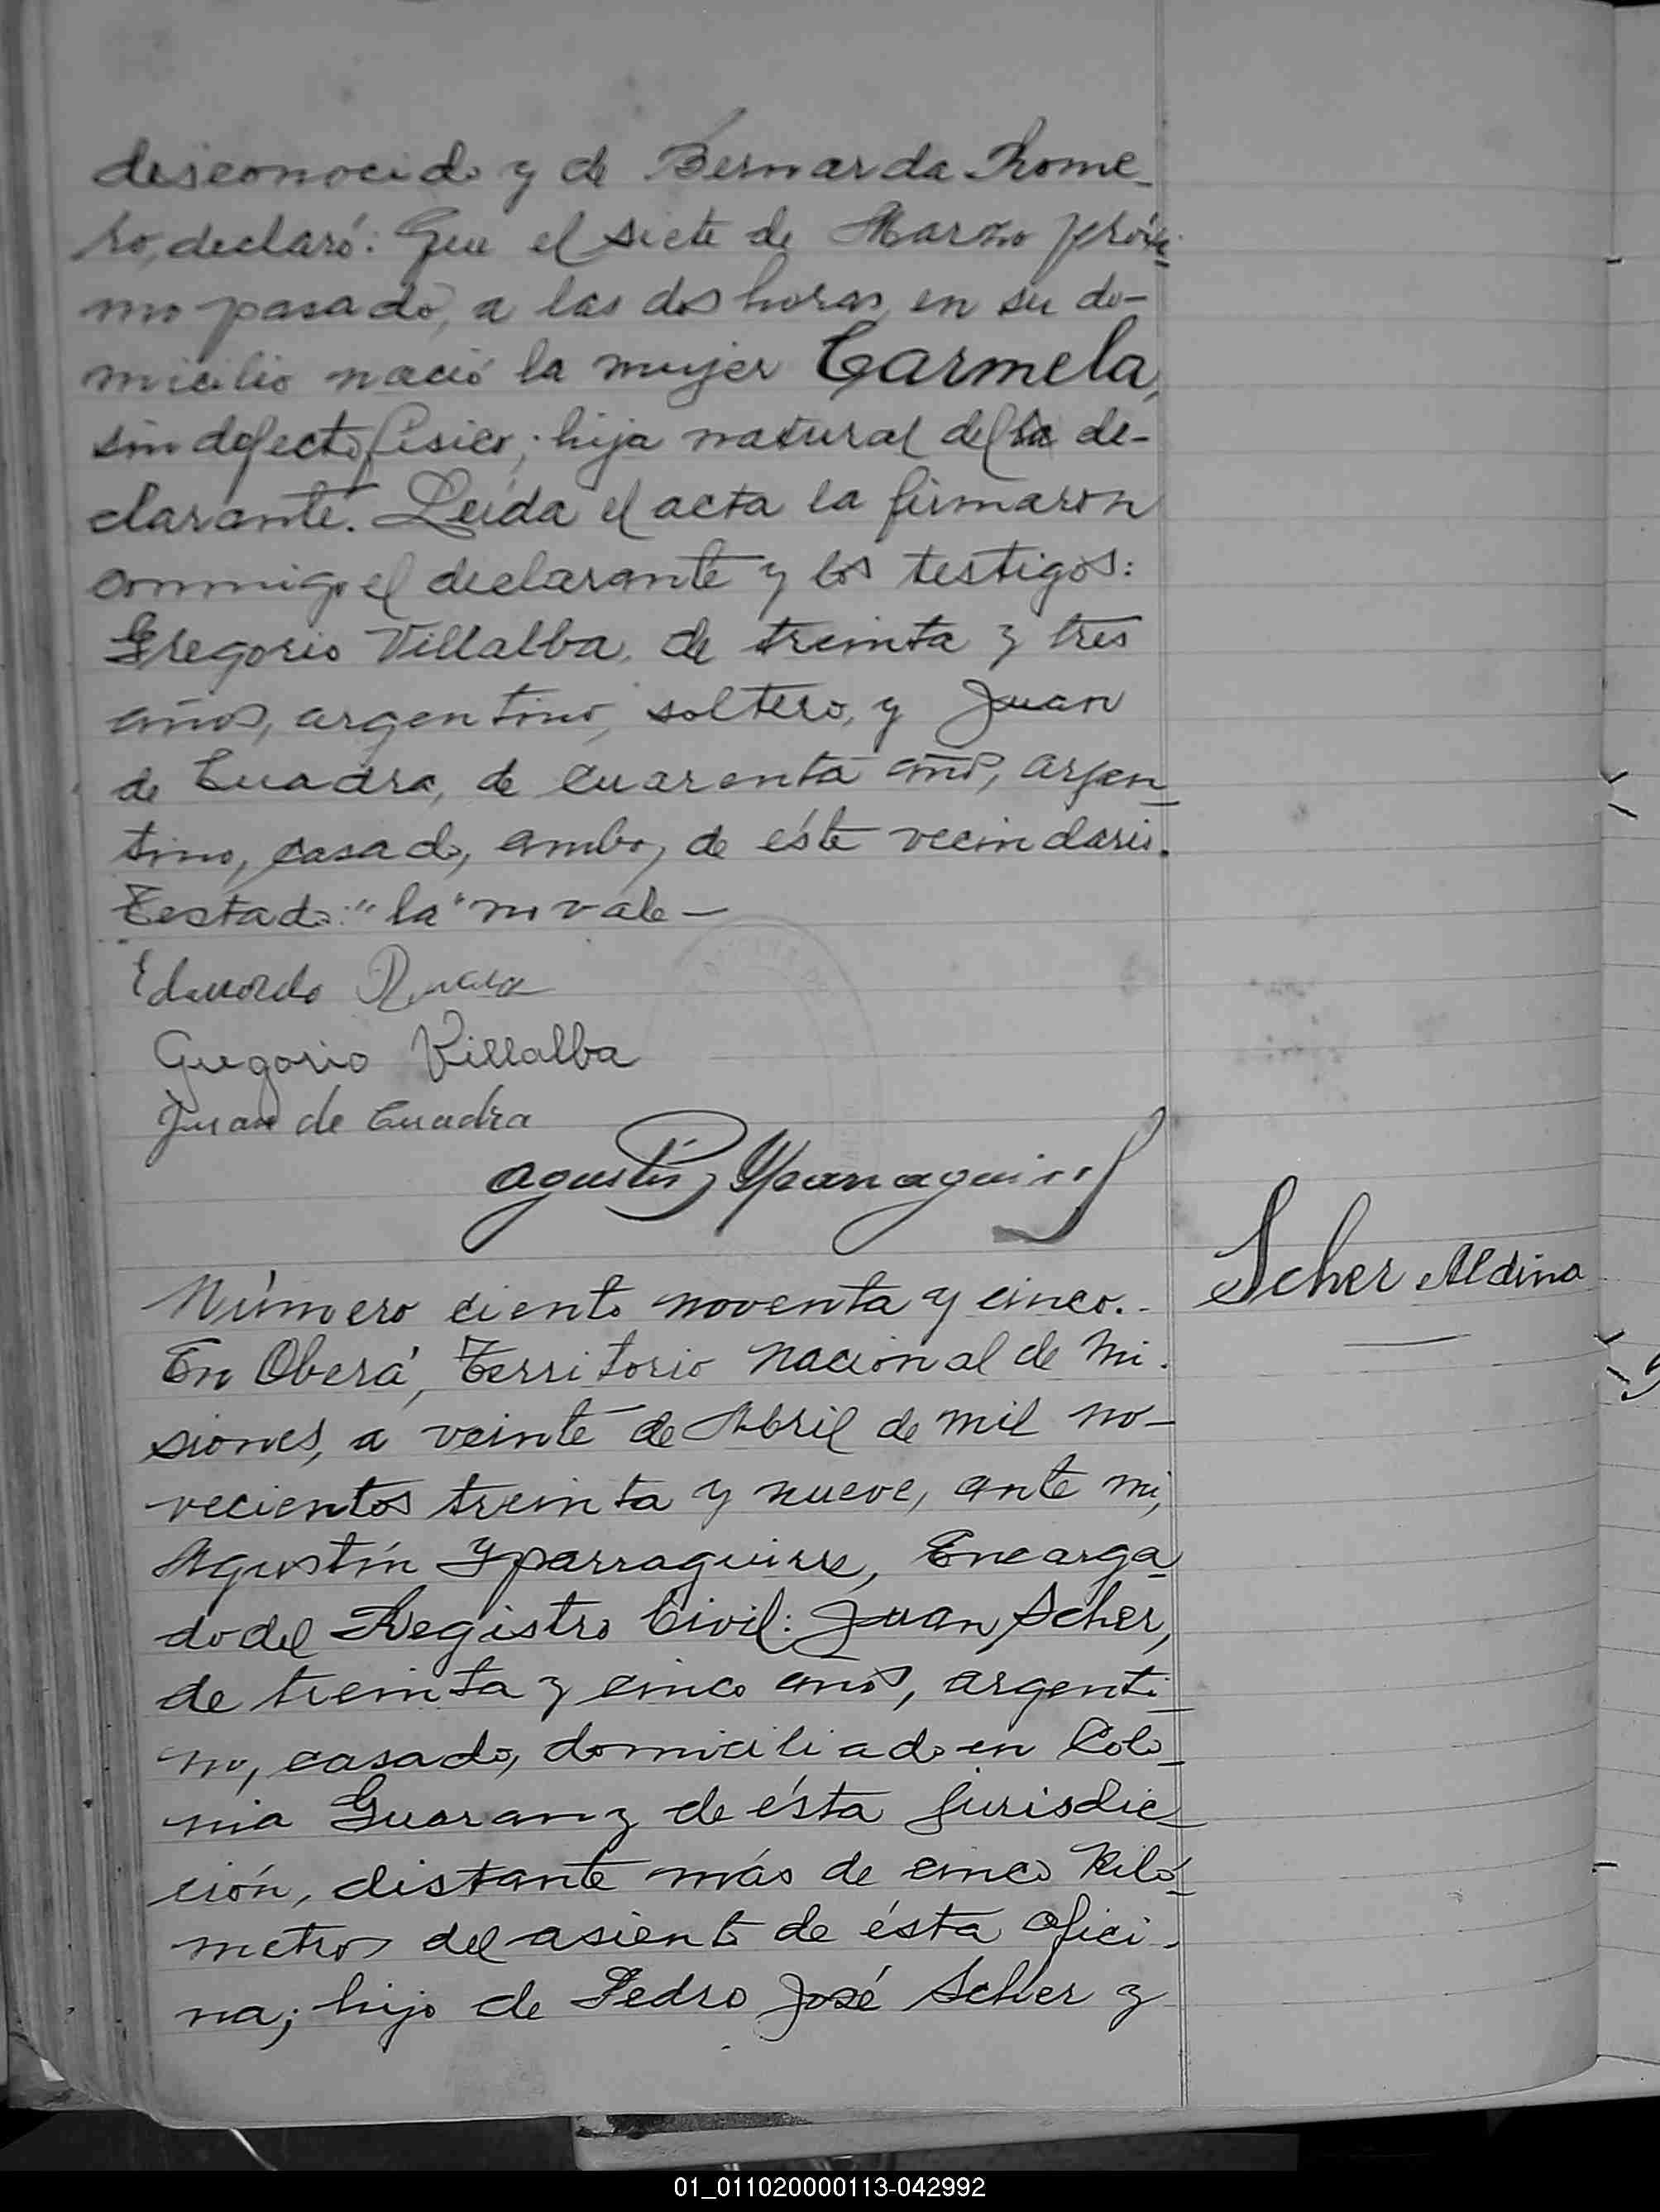 desconocido y de Bernarda Rome-
ro, declaró: Que el siete de Marzo próxi-
mo pasado, a las dos horas, en su do-
micilio nació la mujer Carmela,
sin defecto físico; hija natural del la de-
clarante. Leída el acta la firmaron
conmigo el declarante y los testigos:
Gregorio Villalba, de treinta y tres
años, argentino, soltero, y Juan
de Cuadra, de cuarenta años, argen-
tino, casado, ambos de éste vecindario.
Testado: "la" no vale—
Eduardo
Gregorio Villalba
Juan de Cuadra
Agustín Yparraguirre
Número ciento noventa y cinco.-
En Oberá, Territorio Nacional de Mi-
siones, a veinte de Abril de mil no-
vecientos treinta y nueve, ante mi,
Agustín Yparraguirre, Encarga-
do del Registro Civil: Juan Scher,
de treinta y cinco años, argenti-
no, casado, domiciliado en Colo-
nia Guarany de ésta jurisdic-
ción, distante más de cinco kiló-
metros del asiento de ésta ofici-
na; hijo de Pedro José Scher y
Scher Aldina
01_011020000113-042992